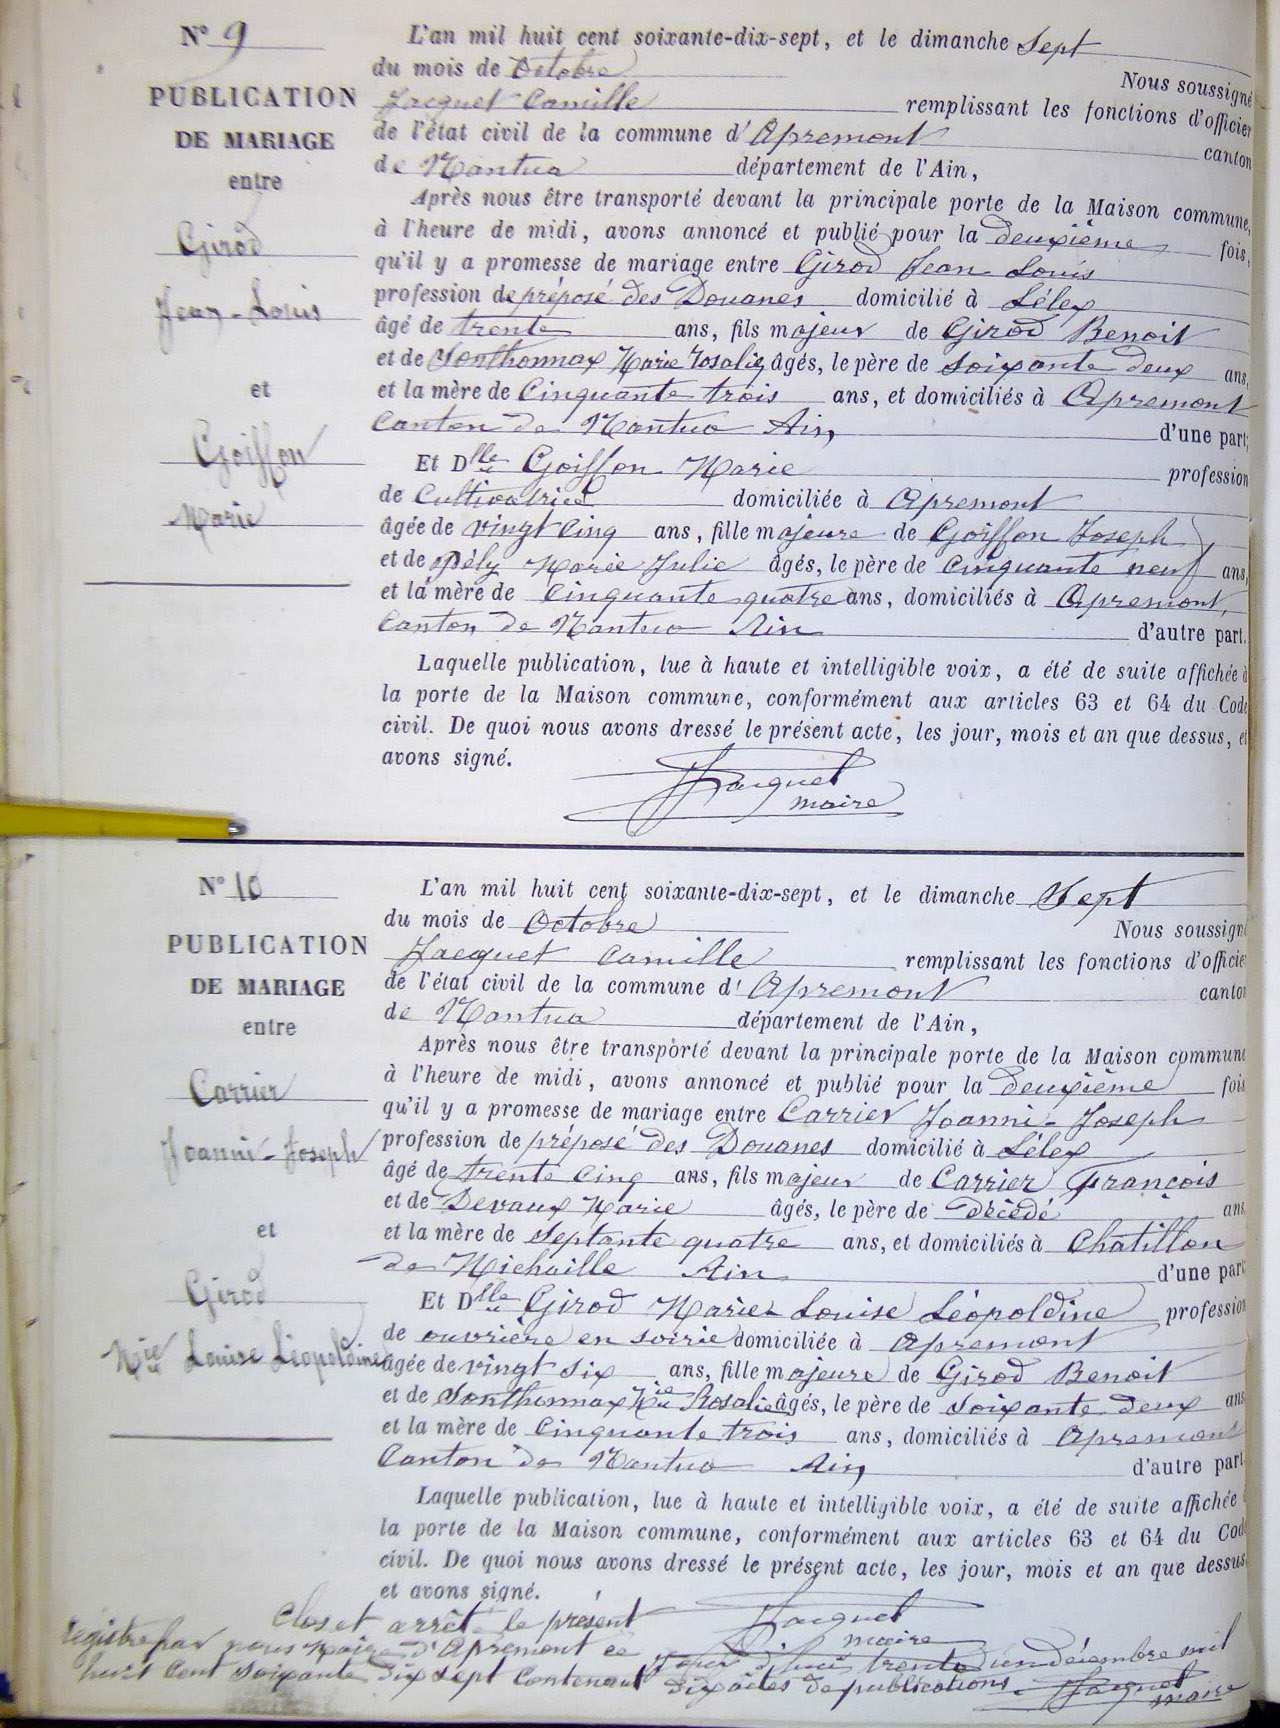 N° 9
PUBLICATION
DE MARIAGE
entre
Girod
Jean-Louis
et
Goiffon
Marie
L'an mil huit cent soixante-dix-sept, et le dimanche sept
du mois de Octobre
Nous soussigné
Jacquet Camille remplissant les fonctions d'officier
de l'état civil de la commune d'Apremont canton
de Nantua département de l'Ain,
Après nous être transporté devant la principale porte de la Maison commune,
à l'heure de midi, avons annoncé et publié pour la deuxième fois,
qu'il y a promesse de mariage entre Girod Jean Louis
profession de préposé des Douanes domicilié à Lélex
âgé de trente ans, fils majeur de Girod Benoit
et de Sonthonnax Marie Rosalie âgés, le père de soixante deux ans,
et la mère de Cinquante trois ans, et domiciliés à Apremont
Canton de Nantua Ain, d'une part;
Et Dlle Goiffon Marie profession
de Cultivatrice domiciliée à Apremont
âgée de vingt cinq ans, fille majeure de Goiffon Joseph
et de Pély Marie Julie âgés, le père de Cinquante neuf ans,
et la mère de Cinquante quatre ans, domiciliés à Apremont,
Canton de Nantua Ain d'autre part.
Laquelle publication, lue à haute et intelligible voix, a été de suite affichée à
la porte de la Maison commune, conformément aux articles 63 et 64 du Code
civil. De quoi nous avons dressé le présent acte, les jour, mois et an que dessus, et
avons signé.
Jacquet
maire
N° 10
PUBLICATION
DE MARIAGE
entre
Carrier
Joanni-Joseph
et
Girod
Mie Louise Léopoldine
L'an mil huit cent soixante-dix-sept, et le dimanche Sept
du mois de Octobre Nous soussigné
Jacquet Camille remplissant les fonctions d'officier
de l'état civil de la commune d'Apremont canton
de Nantua département de l'Ain,
Après nous être transporté devant la principale porte de la Maison commune
à l'heure de midi, avons annoncé et publié pour la deuxième fois
qu'il y a promesse de mariage entre Carrier Joanni-Joseph
profession de préposé des Douanes domicilié à Lélex
âgé de trente Cinq ans, fils majeur de Carrier François
et de Devaux Marie âgés, le père de Décédé ans
et la mère de Septante quatre ans, et domiciliés à Châtillon
de Michaille Ain d'une part
Et Dlle Girod Marie-Louise Léopoldine profession
de ouvrière en soirie domiciliée à Apremont
âgée de vingt six ans, fille majeure de Girod Benoit
et de Sonthonnax Mie Rosalie âgés, le père de Soixante deux ans
et la mère de Cinquante trois ans, domiciliés à Apremont
Canton de Nantua Ain, d'autre part
Laquelle publication, lue à haute et intelligible voix, a été de suite affichée
la porte de la Maison commune, conformément aux articles 63 et 64 du Code
civil. De quoi nous avons dressé le présent acte, les jour, mois et an que dessus
et avons signé.
Jacquet
maire
Clos et arrêté le présent
registre par nous Maire d'Apremont ce jour d'hui trente un décembre mil
huit cent soixante dix sept Contenant dix actes de publications.
Jacquet
maire